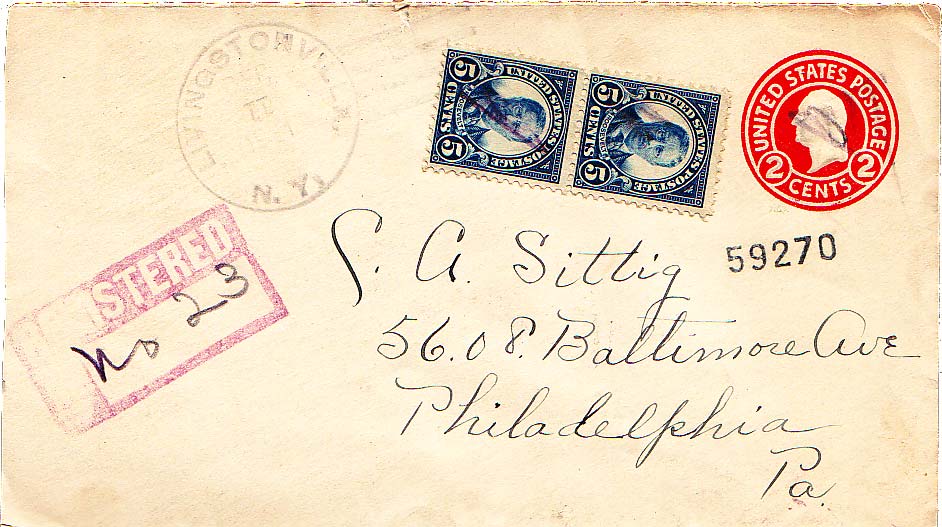 LIVINGSTONVILLE
N. Y.
5 UNITED STATES POSTAGE 5
CENTS
5 UNITED STATES POSTAGE 5
CENTS
UNITED STATES POSTAGE
2 CENTS 2
59270
REGISTERED
No 23
S. A. Sittig
5608. Baltimore Ave
Philadelphia
Pa.